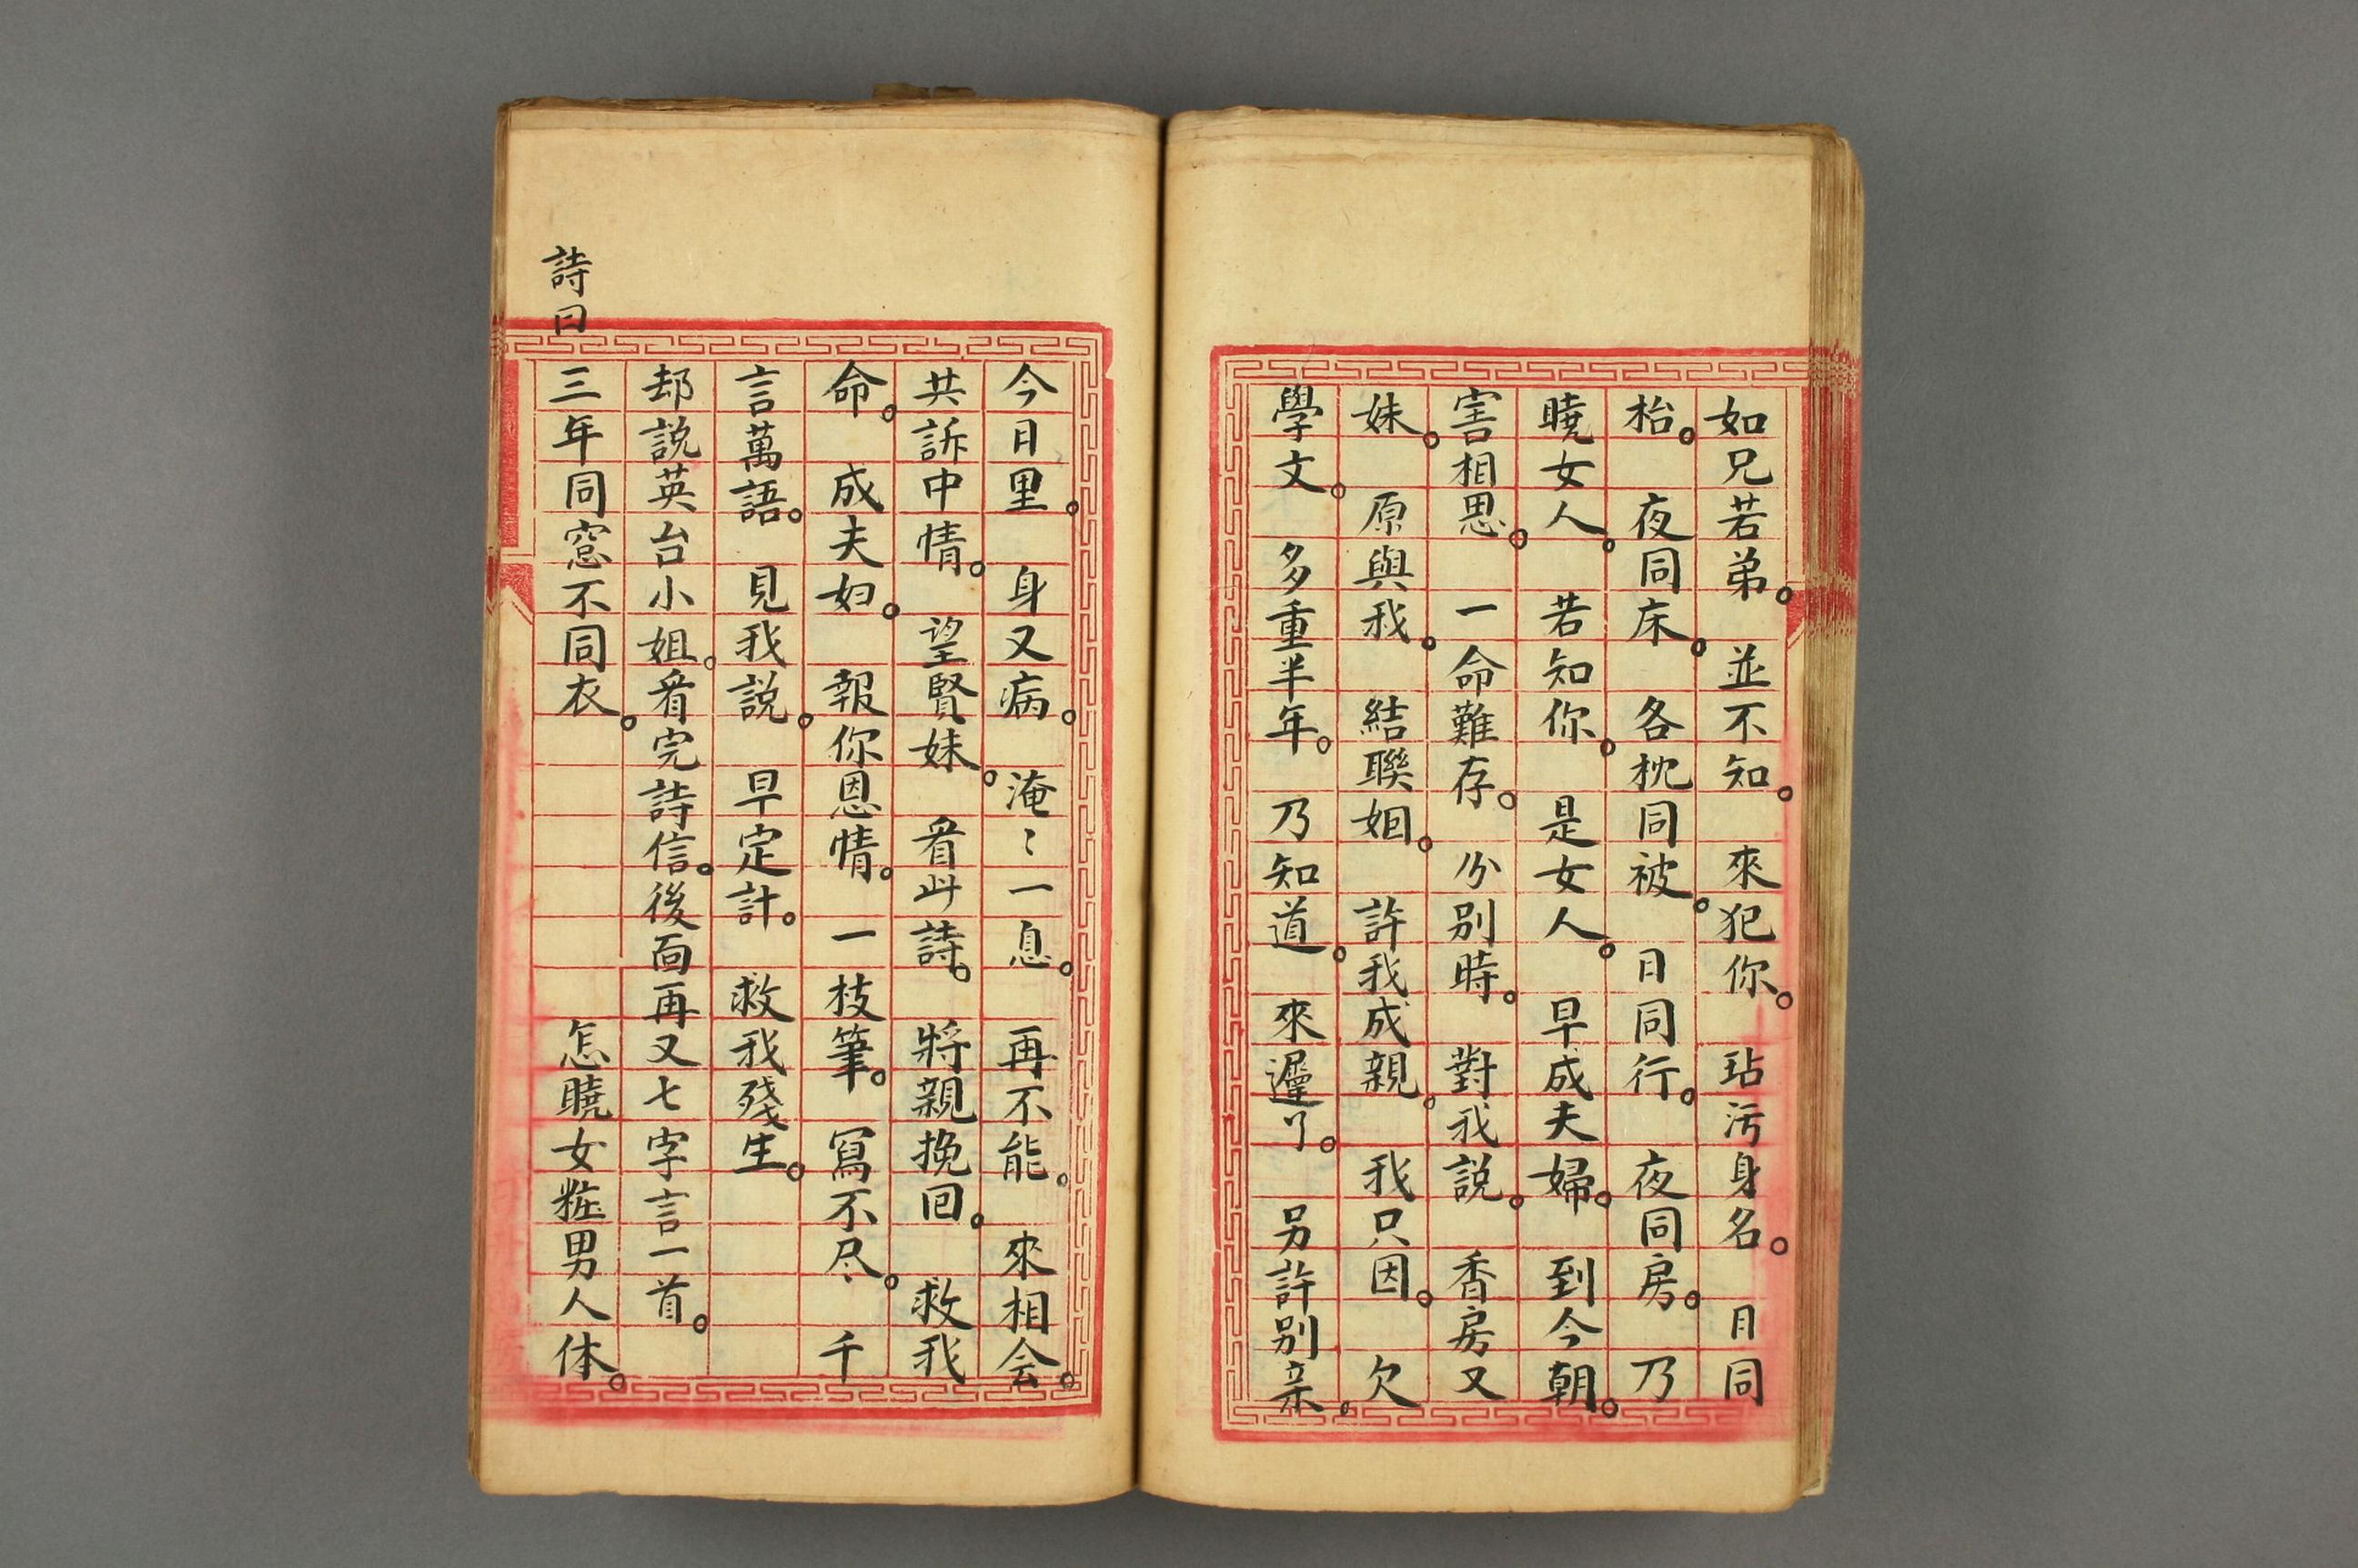 如兄若弟。並不知。來犯你。玷污身名。日同
枱。夜同床。各枕同被。日同行。夜同房。乃
曉女人。若知你。是女人。早成夫婦。到今朝。
害相思。一命難存。分別時。對我說。香房又
妹。原與我。結聯姻。許我成親。我只因。欠
學文。多重半年。乃知道。來遲了。另許別亲。
今日里。身又病。淹〻一息。再不能。來相会。
共訴中情。望賢妹。看此詩。將親挽回。救我
命。成夫妇。報你恩情。一枝筆。寫不尽。千
言萬語。見我說。早定計。救我殘生。
却說英台小姐。看完詩信。後面再又七字言一首。
詩曰
三年同窓不同衣。怎曉女粧男人体。